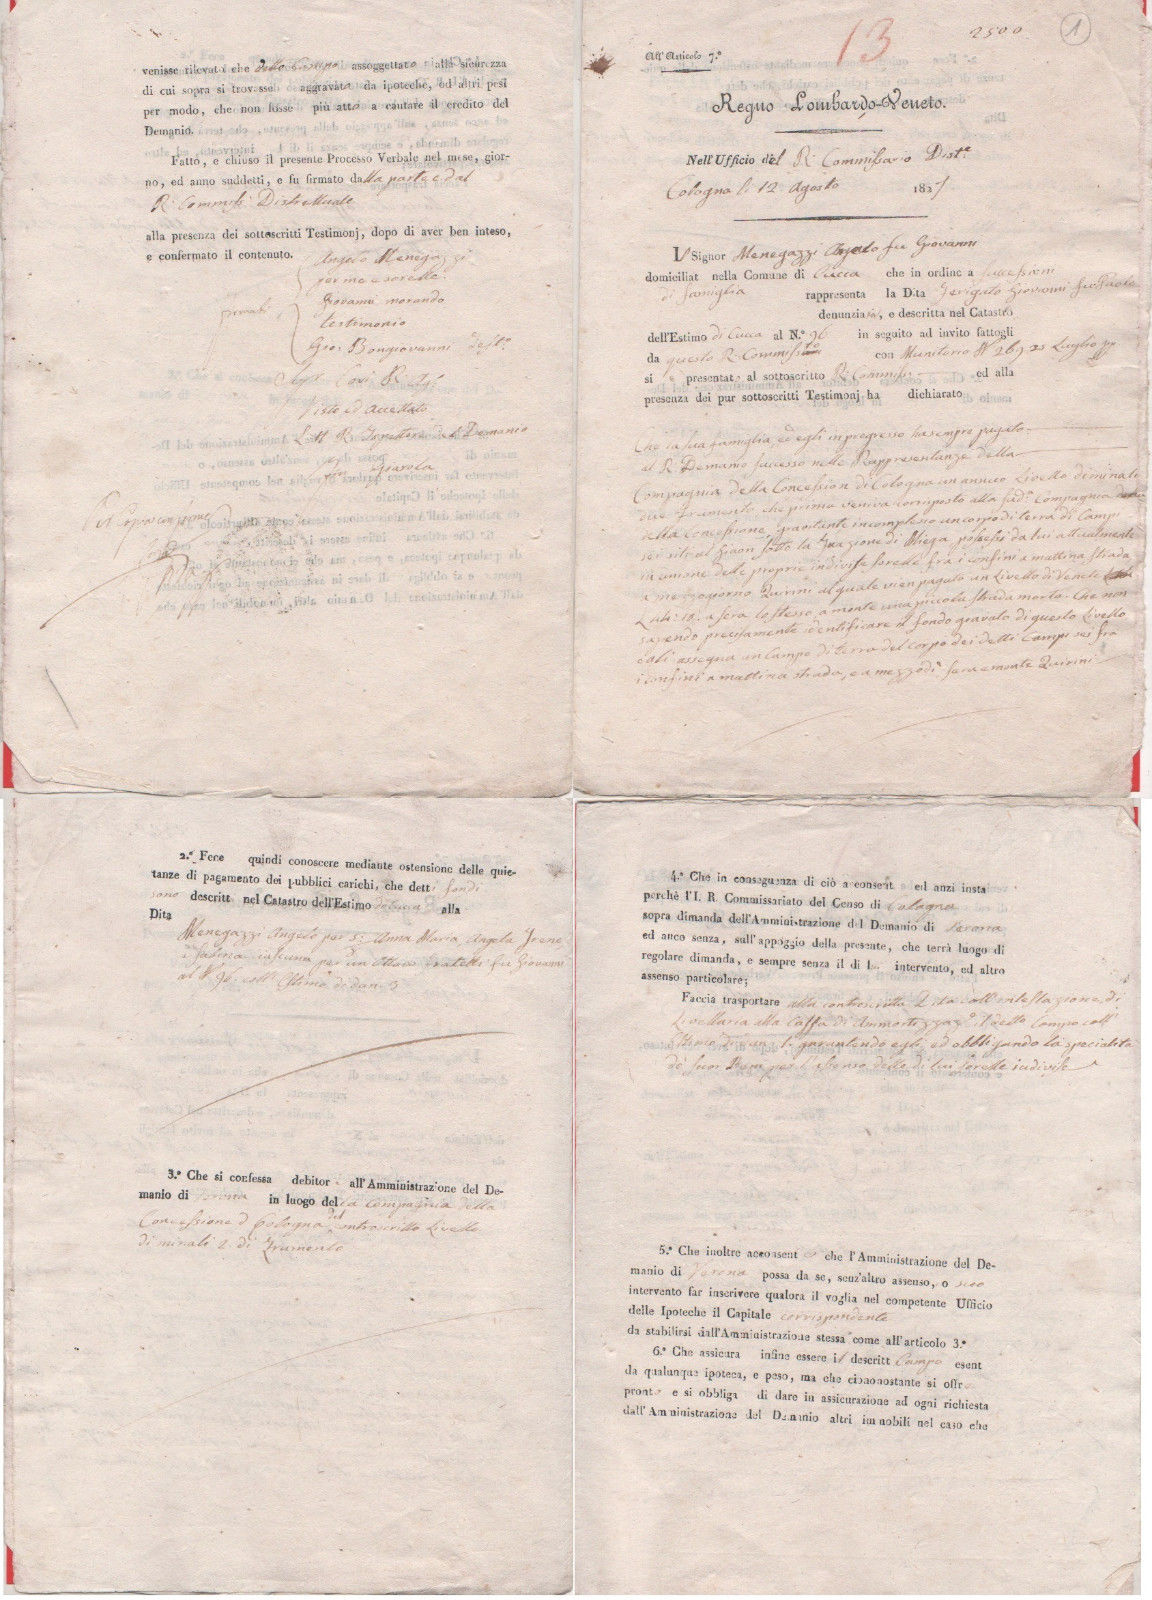 13
2500
1
All' Articolo 7.º
Regno Lombardo-Veneto.
Nell'Ufficio del R. Commissario Dist.e
Cologna li 12 Agosto 1827
Il Signor Menegazzi Angelo fu Giovanni
domiciliat nella Comune di Cucca che in ordine a successioni
di famiglia rappresenta la Dita Giovanni
denunzia, e descritta nel Catastro
dell'Estimo di Cucca al N.º 96 in seguito ad invito fattogli
da questo R. Commiss. con Luglio
si è presentato al sottoscritto R. Commiss. ed alla
presenza dei pur sottoscritti Testimonj ha dichiarato
Che la sua famiglia, ed egli in progresso ha sempre pagato
al R. Demanio successo nelle Rappresentanze della
Compagnia della Concession di Cologna un annuo Livello di minali
due Frumento, che prima veniva corrisposto alla sud.a Compagnia
della Concessione, gravitante in complesso un corpo di terra di Campi
sei siti al sotto la di Miega possessi da lui attualmente
in unione delle proprie indivise sorelle fra i confini a mattina strada
a mezzogiorno Quirini al quale vien pagato un Livello di Venete
a sera lo stesso, a monte una piccola strada morta. Che non
sapendo precisamente identificare il fondo gravato di questo Livello
egli assegna un Campo di terra del corpo dei detti Campi sei fra
i confini a mattina strada, e a mezzodì sera e monte Quirini
2.º Fece quindi conoscere mediante ostensione delle quie-
tanze di pagamento dei pubblici carichi, che detti fondi
sono descritt nel Catastro dell'Estimo di Cucca alla
Dita
Menegazzi Angelo per Anna Maria Angela Irene
per un Fratelli fu Giovanni
al N.º 96 coll' Estimo di dan. 3
3.º Che si confessa debitor all'Amministrazione del De-
manio di Verona in luogo della Compagnia della
Concessione di Cologna del controscritto Livello
di minali 2. di Frumento
4.º Che in conseguenza di ciò acconsent ed anzi insta
perchè l'I. R. Commissariato del Censo di Cologna
sopra dimanda dell'Amministrazione del Demanio di Verona
ed anco senza, sull'appoggio della presente, che terrà luogo di
regolare dimanda, e sempre senza il di l intervento, ed altro
assenso particolare;
Faccia trasportare alla controscritta Dita coll'intestazione di
Livellaria alla Cassa di Ammortizzaz.e il detto Campo coll'
Estimo di dan. 1. garantendo egli, ed obbligando la specialità
de' suoi Beni per l'assenso delle di lui sorelle indivise
5.º Che inoltre acconsent e che l'Amministrazione del De-
manio di Verona possa da se, senz'altro assenso, o suo
intervento far inscrivere qualora il voglia nel competente Ufficio
delle Ipoteche il Capitale corrispondente
da stabilirsi dall'Amministrazione stessa come all'articolo 3.º
6.º Che assicura infine essere il descritt Campo esent
da qualunque ipoteca, e peso, ma che ciononostante si offre
pronto e si obbliga di dare in assicurazione ad ogni richiesta
dall'Amministrazione del Demanio altri immobili nel caso che
venisse rilevato che detto Campo assoggettato alla sicurezza
di cui sopra si trovasse aggravato da ipoteche, od altri pesi
per modo, che non fosse più atto a cautare il credito del
Demanio.
Fatto, e chiuso il presente Processo Verbale nel mese, gior-
no, ed anno suddetti, e fu firmato dalla parte e dal
R. Commiss. Distrettuale
alla presenza dei sottoscritti Testimonj, dopo di aver ben inteso,
e confermato il contenuto.
Angelo Menegazzi
per me e sorelle
firmati Giovanni morando
testimonio
Gio: Bongiovanni test.o
Visto ed Accettato
R. Ispettore del Demanio
Per Copia conforme